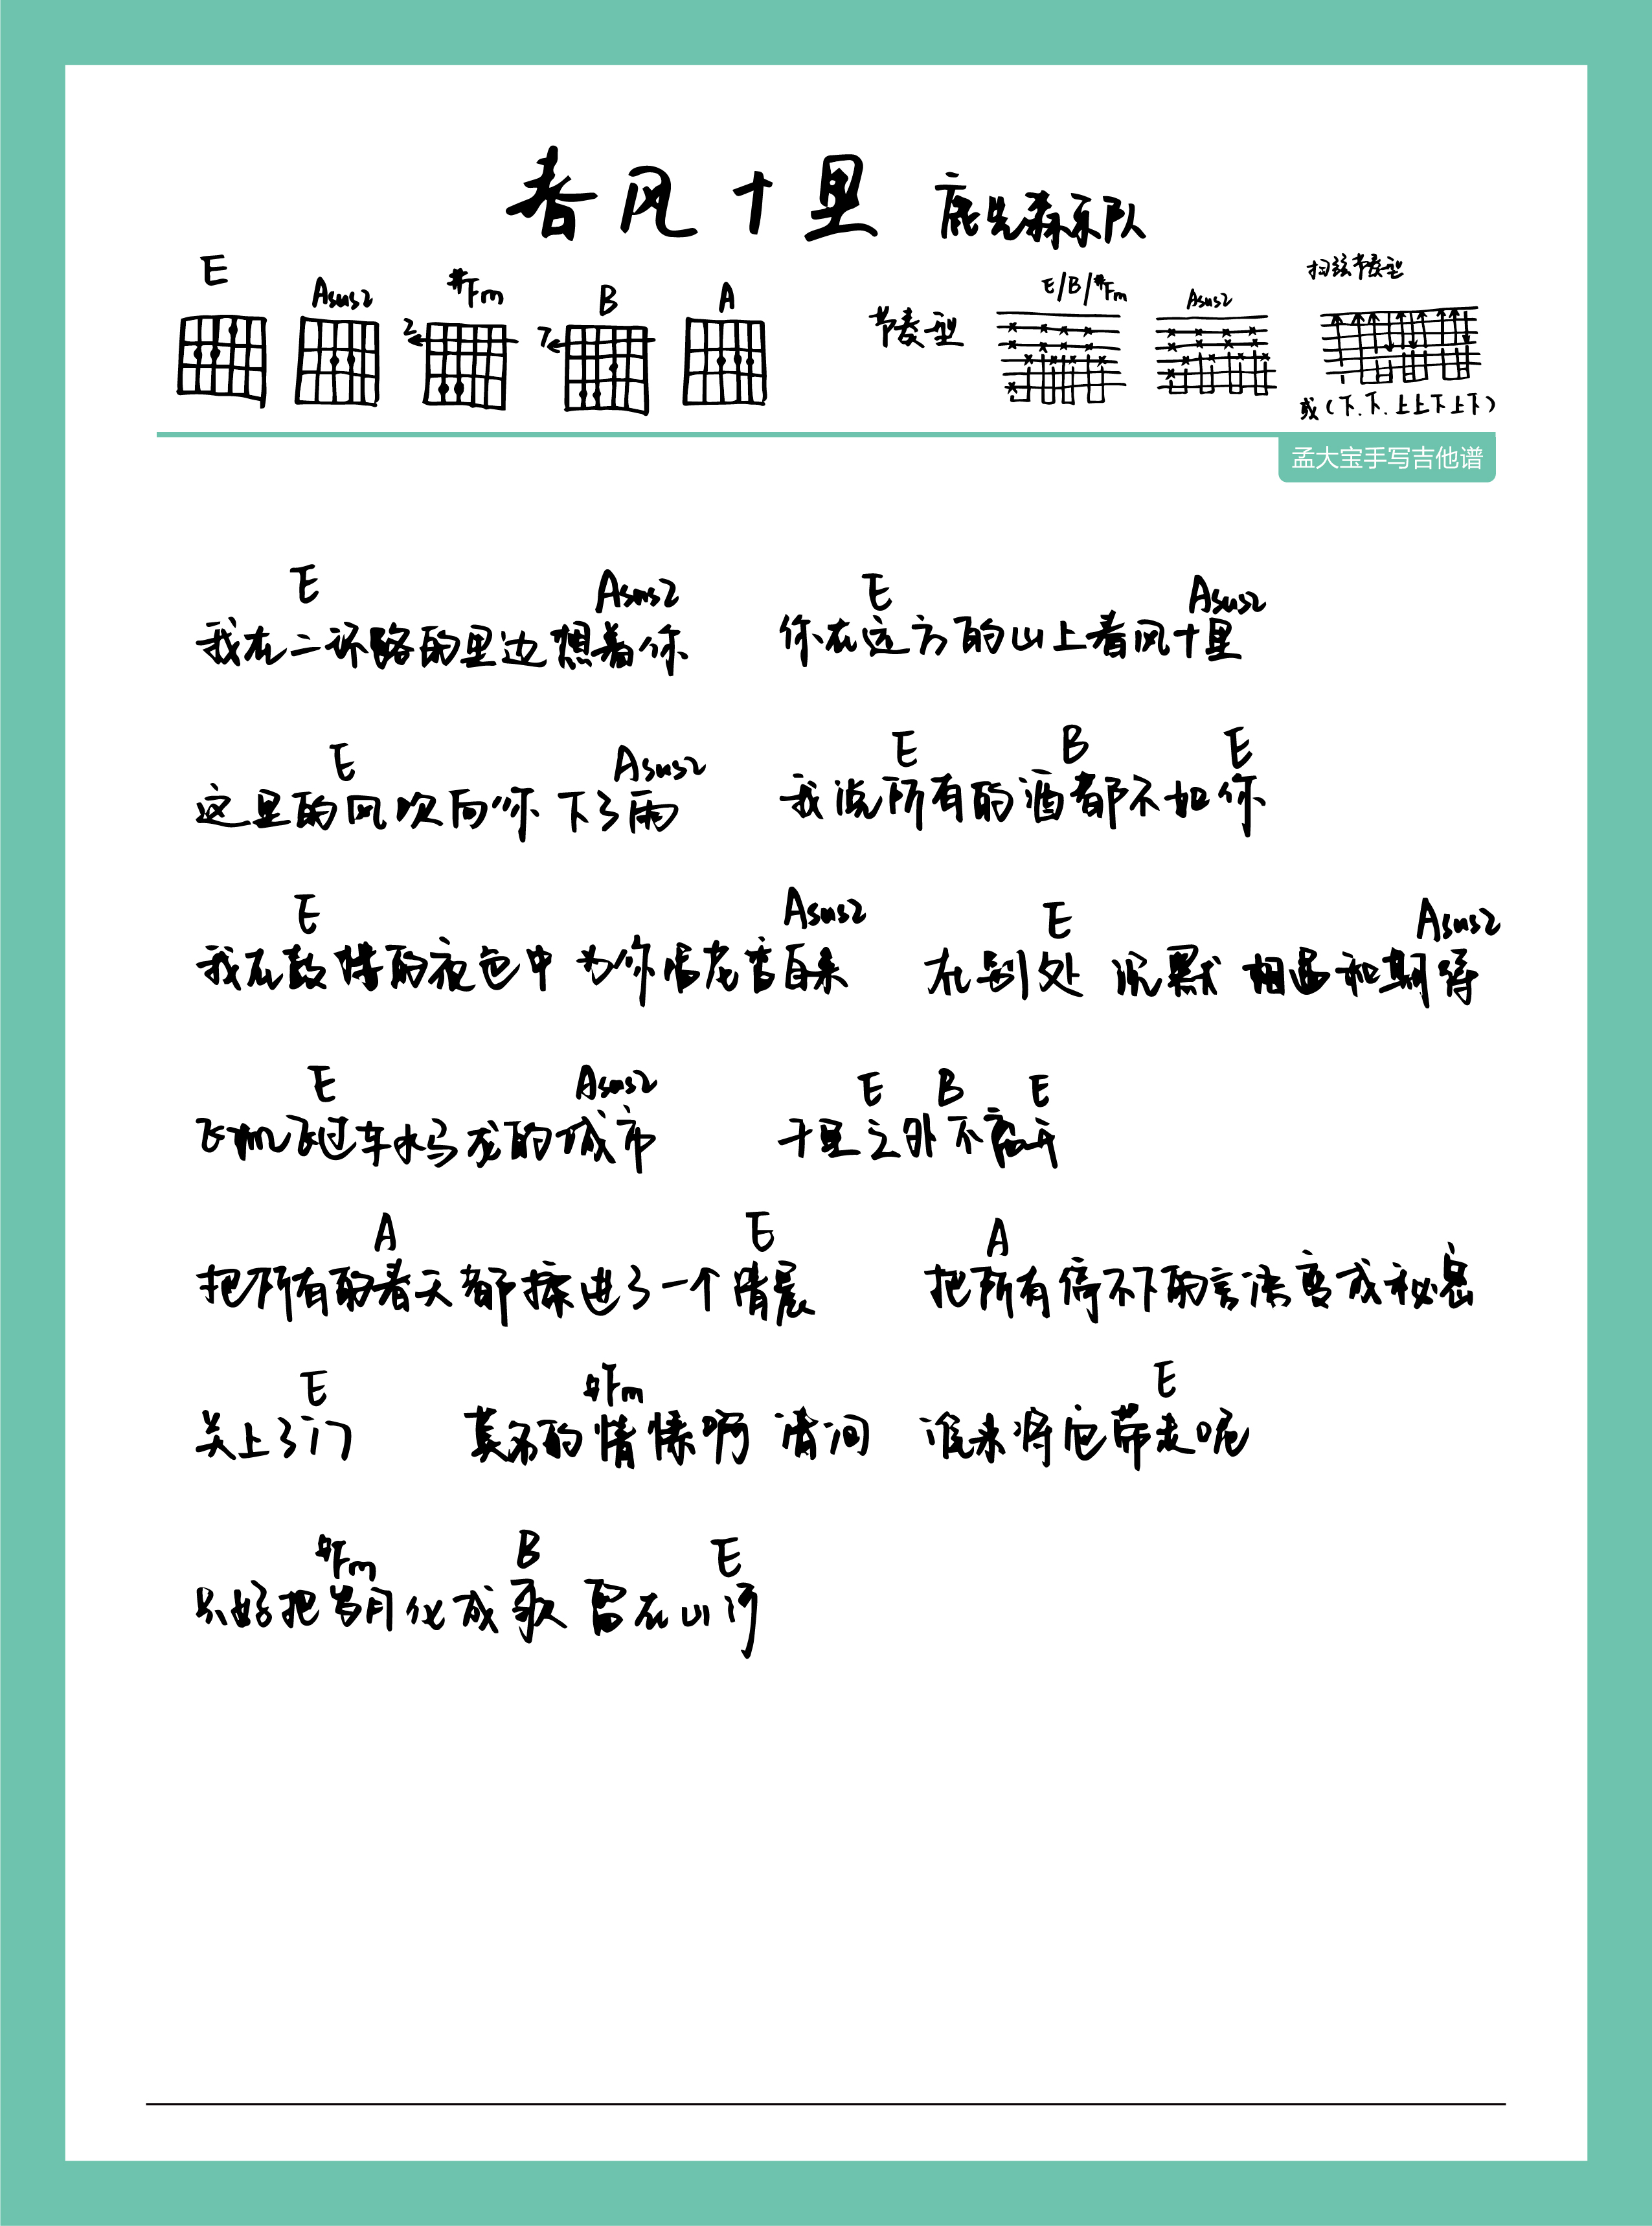 春风十里 鹿先森乐队
E Asus2 #Fm B A 节奏型 E/B/#Fm Asus2 扫弦节奏型
2 7
或(下、下、上上下上下)
孟大宝手写吉他谱
E Asus2 E Asus2
我在二环路的里边想着你 你在远方的山上春风十里
E Asus2 E B E
这里的风吹向你 下了雨 我说所有的酒都不如你
E Asus2 E Asus2
我在鼓楼的夜色中 为你唱花香自来 在别处 沉默 相遇和期待
E Asus2 E B E
飞机飞过车水马龙的城市 千里之外不离开
A E A
把所有的春天都揉进了一个清晨 把所有停不下的言语变成秘密
E #Fm E
关上了门 莫名的情愫啊 请问 谁来将它带走呢
#Fm B E
只好把岁月化成歌 留在山河